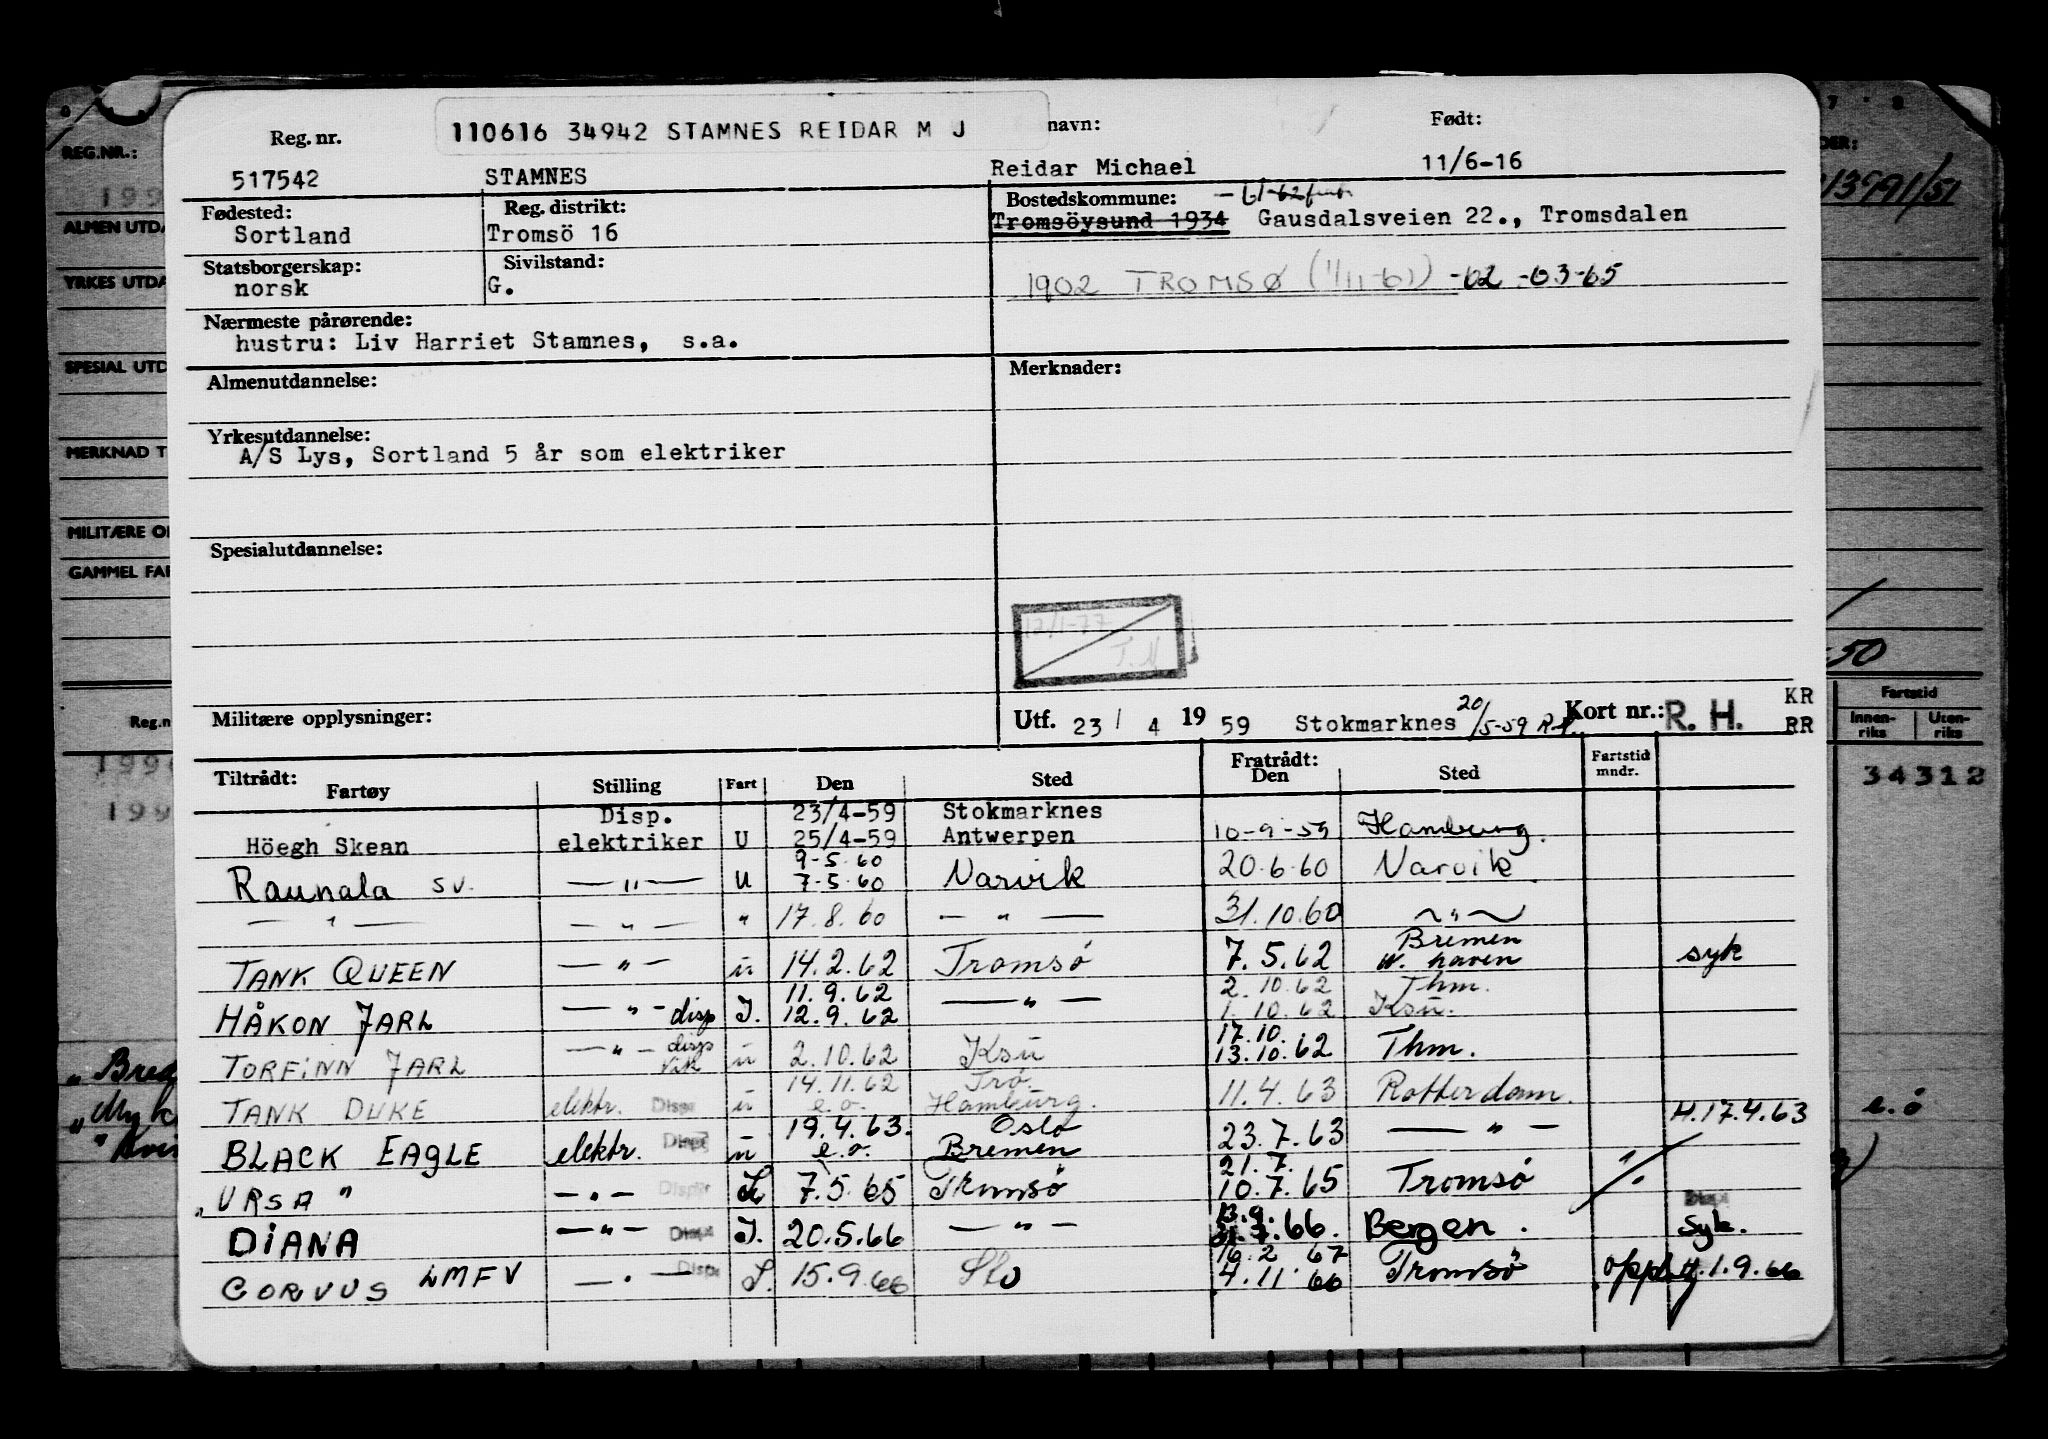 Reg. nr.
110616 34942 STAMNES REIDAR M J
navn:
Født:
517542 STAMNES Reidar Michael 11/6-16
Fødested:
Sortland
Reg. distrikt:
Tromsö 16
Bostedskommune: -61-62
Tromsöysund 1934 Gausdalsveien 22., Tromsdalen
Statsborgerskap:
norsk
Sivilstand:
G.
1902 TROMSØ (1/11-61) -62 -63-65
Nærmeste pårørende:
hustru: Liv Harriet Stamnes, s.a.
Almenutdannelse:
Merknader:
Yrkesutdannelse:
A/S Lys, Sortland 5 år som elektriker
Spesialutdannelse:
12/1-77
T.M
Militære opplysninger:
Utf. 23/4 1959 Stokmarknes 20/5-59 Kort nr.: R. H. KR
RR
Tiltrådt: Fartøy Stilling Fart Den Sted Fratrådt: Den Sted Fartstid mndr.
Disp. 23/4-59 Stokmarknes
Höegh Skean elektriker U 25/4-59 Antwerpen 10-9-59 Hamburg.
9-5.60
Raunala sv. — " — U 7-5.60 Narvik 20.6.60 Narvik
— " — — " — " 17.8.60 — " — 31.10.60 — " —
Bremen
TANK QUEEN — " — u 14.2.62 Tromsö 7.5.62 W. haven syk
11.9.62 2.10.62 Thm.
HÅKON JARL — " — disp J. 12.9.62 — " — 1.10.62 Ksu.
disp 17.10.
TORFINN JARL — " — vik u 2.10.62 Ksu 13.10.62 Thm.
14.11.62 Trø.
TANK DUKE elektr. Disp u e.o. Hamburg. 11.4.63 Rotterdam.
19.4.63. Oslo H.17.4.63
BLACK EAGLE elektr. Disp u e.o. Bremen 23.7.63 — " —
21.7.
"URSA" — " — Disp L 7.5.65 Tromsö 10.7.65 Tromsö "
13.9. Disp
DIANA — " — Disp J. 20.5.66 — " — 66. Bergen. Syk.
16.2 67
CORVUS LMFV — " — Disp L. 15.9.66 Slo 4.11.66 Tromsö 1.9.66
REG.NR.:
199
ALMEN UTDA
YRKES UTDA
SPESIAL UTD
MERKNAD T
MILITÆRE O
GAMMEL FA
Reg.n
199
199
7 8
DER:
13991/51
-50
Fartstid
Innen-
riks
Uten-
riks
34312
e.ö